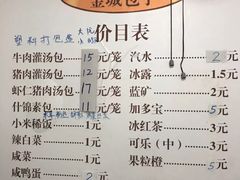 金城包子
塑料打包盒 大1元
价目表
牛肉灌汤包 15 元/笼
猪肉灌汤包 12 元/笼
虾仁猪肉汤包 17 元/笼
什锦素包 11 元/笼
小米稀饭 1元
辣白菜 1元
咸菜 1元
咸鸭蛋 2
汽水 2 元
冰露 1.5元
蓝矿 2元
加多宝 5 元
冰红茶 3元
可乐（中） 3元
果粒橙 5